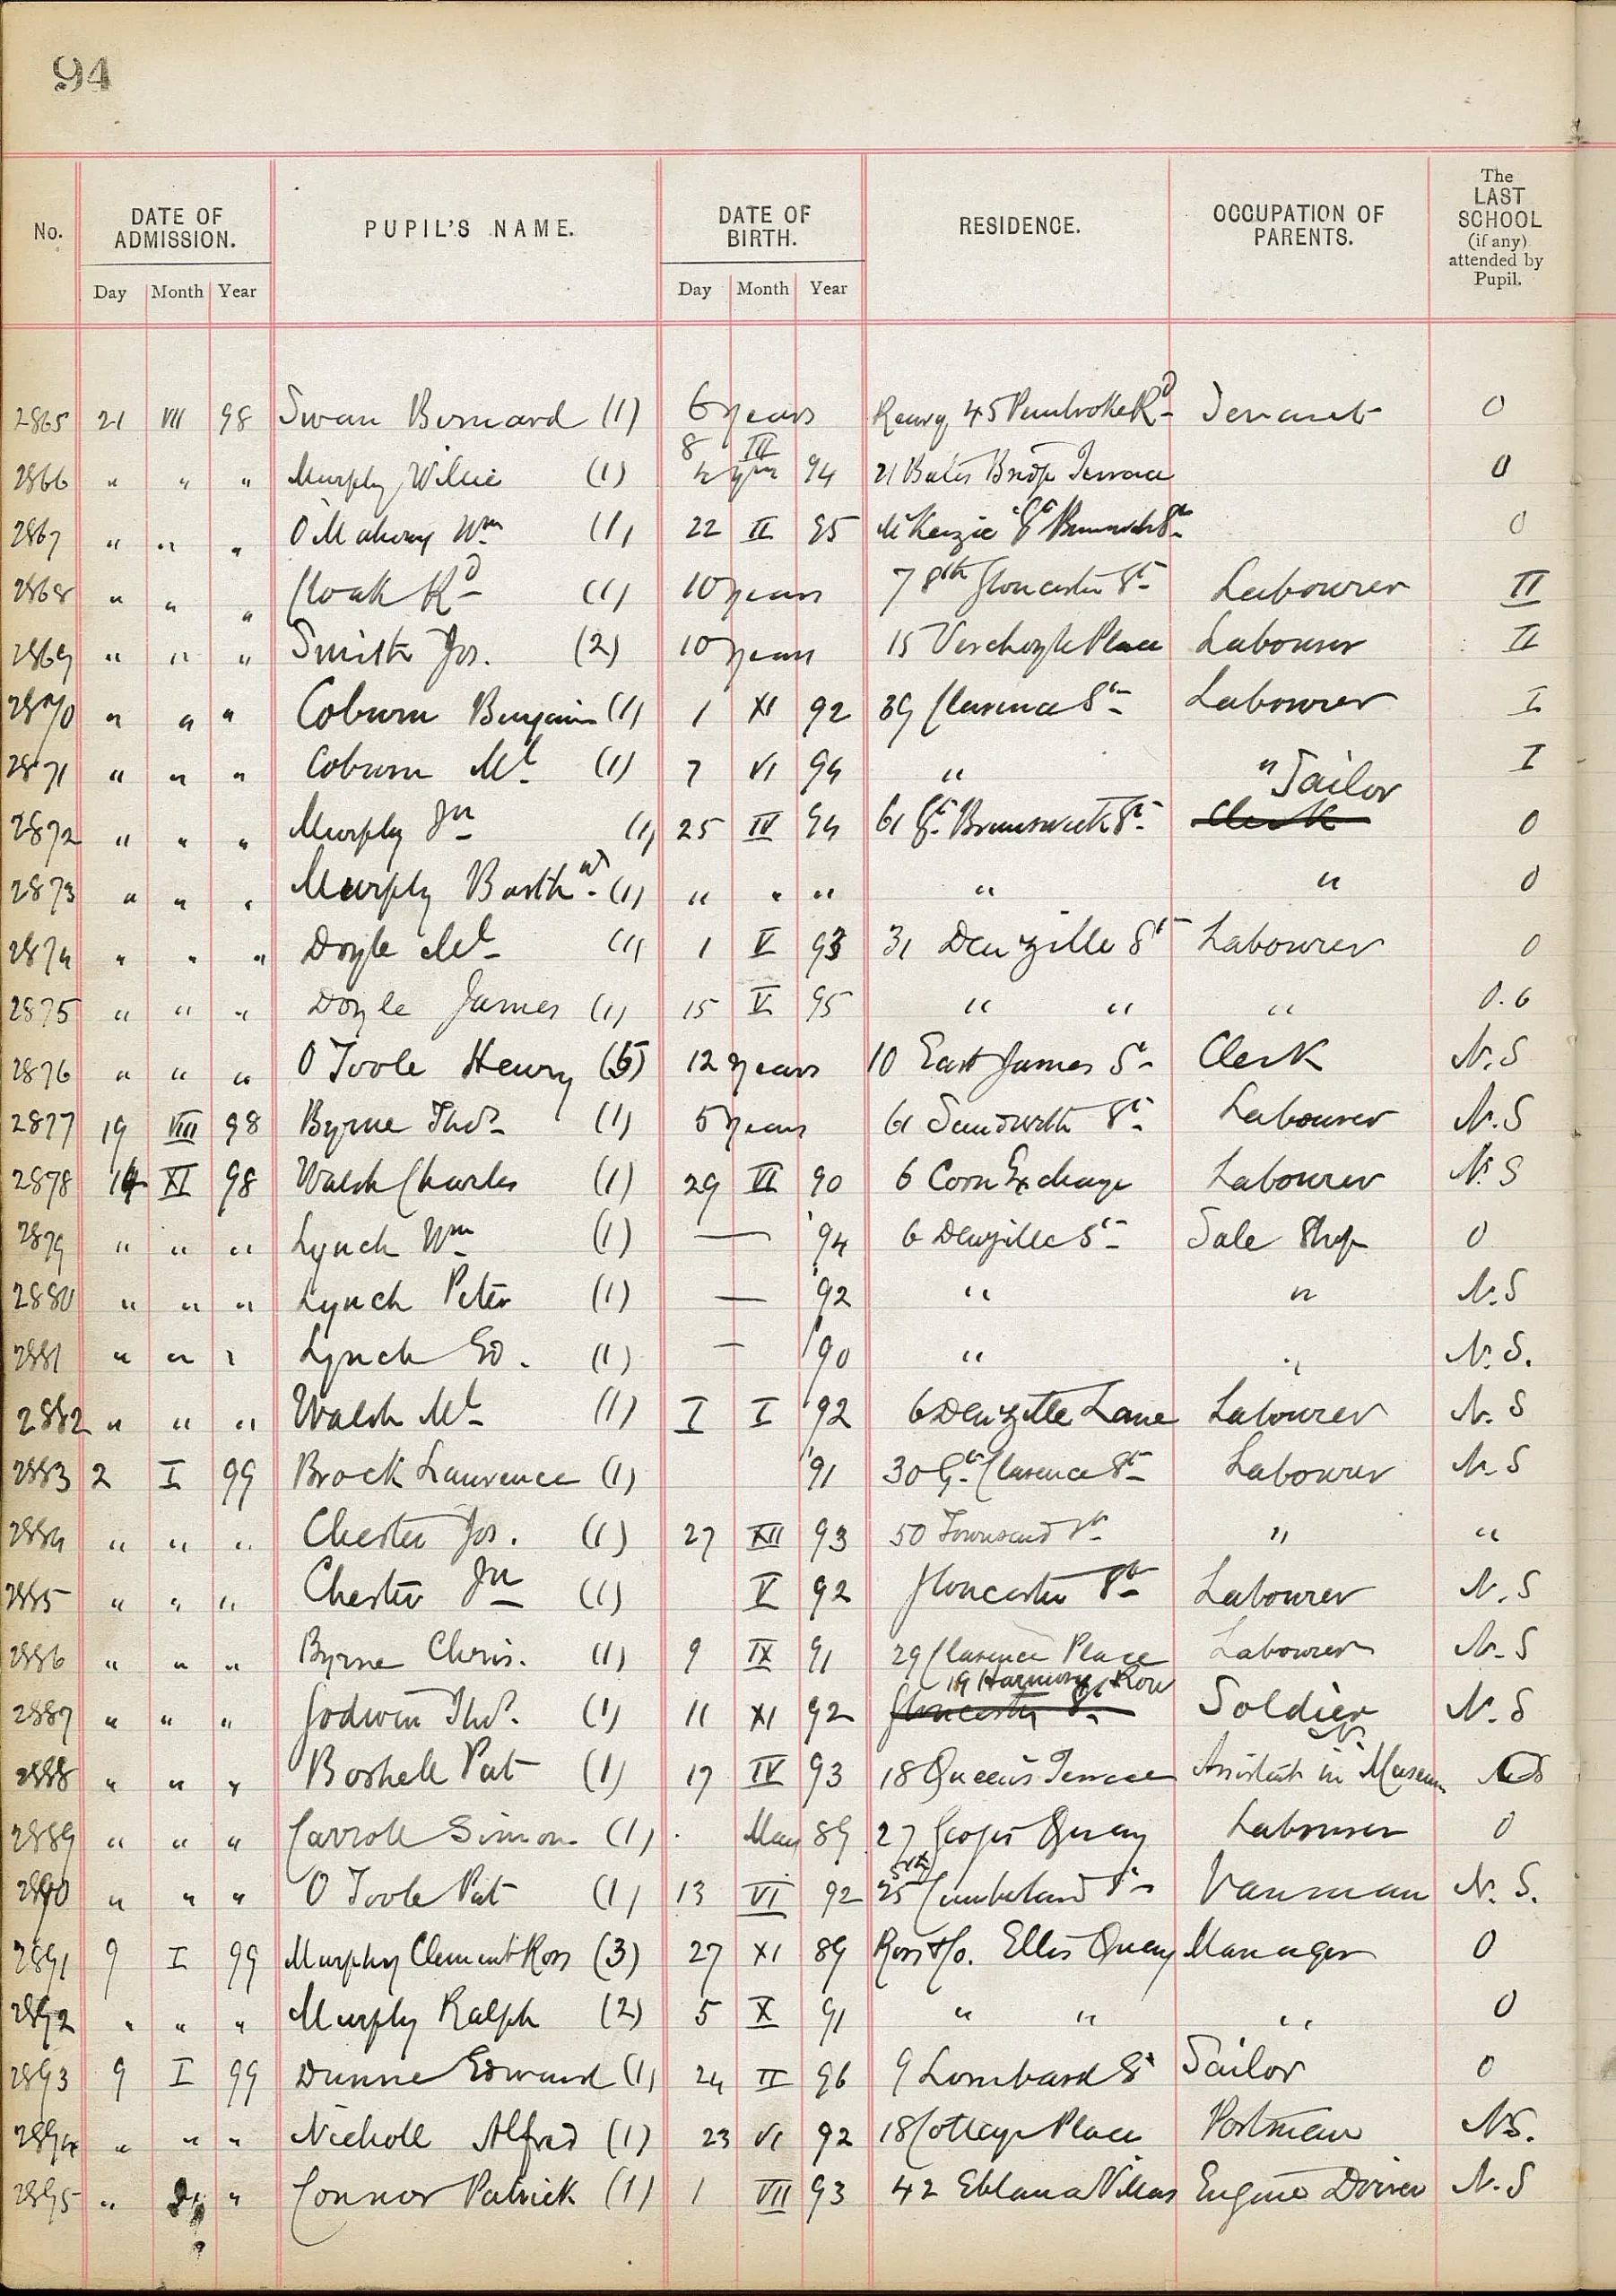 94
No. DATE OF ADMISSION. PUPIL'S NAME. DATE OF BIRTH. RESIDENCE. OCCUPATION OF PARENTS. The LAST SCHOOL (if any) attended by Pupil.
Day Month Year Day Month Year
2865 21 VII 98 Swan Bernard (1) 6 years 45 Pembroke Rd 0
8 III
2866 " " " Murphy Willie (1) 94 21 Terrace 0
2867 " " " O'Mahony Wm (1) 22 II 95 McKenzie Gt Brunswick St 0
2868 " " " Cloak Rd (1) 10 years 7 Sth Gloucester St Labourer II
2869 " " " Smith Jos. (2) 10 years 15 Verschoyle Place Labourer II
2870 " " " Coburn Benjamin (1) 1 XI 92 39 Clarence St Labourer I
2871 " " " Coburn Ml (1) 7 VI 94 " " I
Tailor
2872 " " " Murphy Jn (1) 25 IV 94 61 Gt Brunswick St Clerk 0
2873 " " " Murphy Barthw (1) " " " " " 0
2874 " " " Doyle Ml (1) 1 V 93 31 Denzille St Labourer 0
2875 " " " Doyle James (1) 15 V 95 " " " 0.6
2876 " " " O Toole Henry (5) 12 years 10 East James St Clerk N.S
2877 19 VIII 98 Byrne Thos (1) 5 years 61 Sandwith St Labourer N.S
2878 14 XI 98 Walsh Charles (1) 29 VI 90 6 Corn Exchange Labourer N.S
2879 " " " Lynch Wm (1) — '94 6 Denzille St Sale Shop 0
2880 " " " Lynch Peter (1) — '92 " " N.S
2881 " " " Lynch Ed. (1) — '90 " " N.S.
2882 " " " Walsh Ml (1) I I '92 6 Denzille Lane Labourer N.S
2883 2 I 99 Brock Laurence (1) '91 30 Gt Clarence St Labourer N.S
2884 " " " Chester Jos. (1) 27 XII 93 50 Townsend St " "
2885 " " " Chester Jn (1) V 92 Gloucester St Labourer N.S
2886 " " " Byrne Chris. (1) 9 IX 91 29 Clarence Place Labourer N.S
19 Harmony Row
2887 " " " Godwin Thos. (1) 11 XI 92 Gloucester St Soldier N.S
2888 " " " Boshell Pat (1) 17 IV 93 18 Queen's Terrace Assistant in Museum
2889 " " " Carroll Simon (1) May 89 27 Georges Quay Labourer 0
Sth
2890 " " " O Toole Pat (1) 13 VI 92 25 Cumberland St Vanman N.S.
2891 9 I 99 Murphy Clement Ross (3) 27 XI 89 Ross & Co. Ellis Quay Manager 0
2892 " " " Murphy Ralph (2) 5 X 91 " " " 0
2893 9 I 99 Dunne Edward (1) 24 II 96 9 Lombard St Tailor 0
2894 " " " Nicholl Alfred (1) 23 VI 92 18 Cottage Place Postman NS.
2895 " " Connor Patrick (1) 1 VII 93 42 Eblana Villas Engine Driver N.S